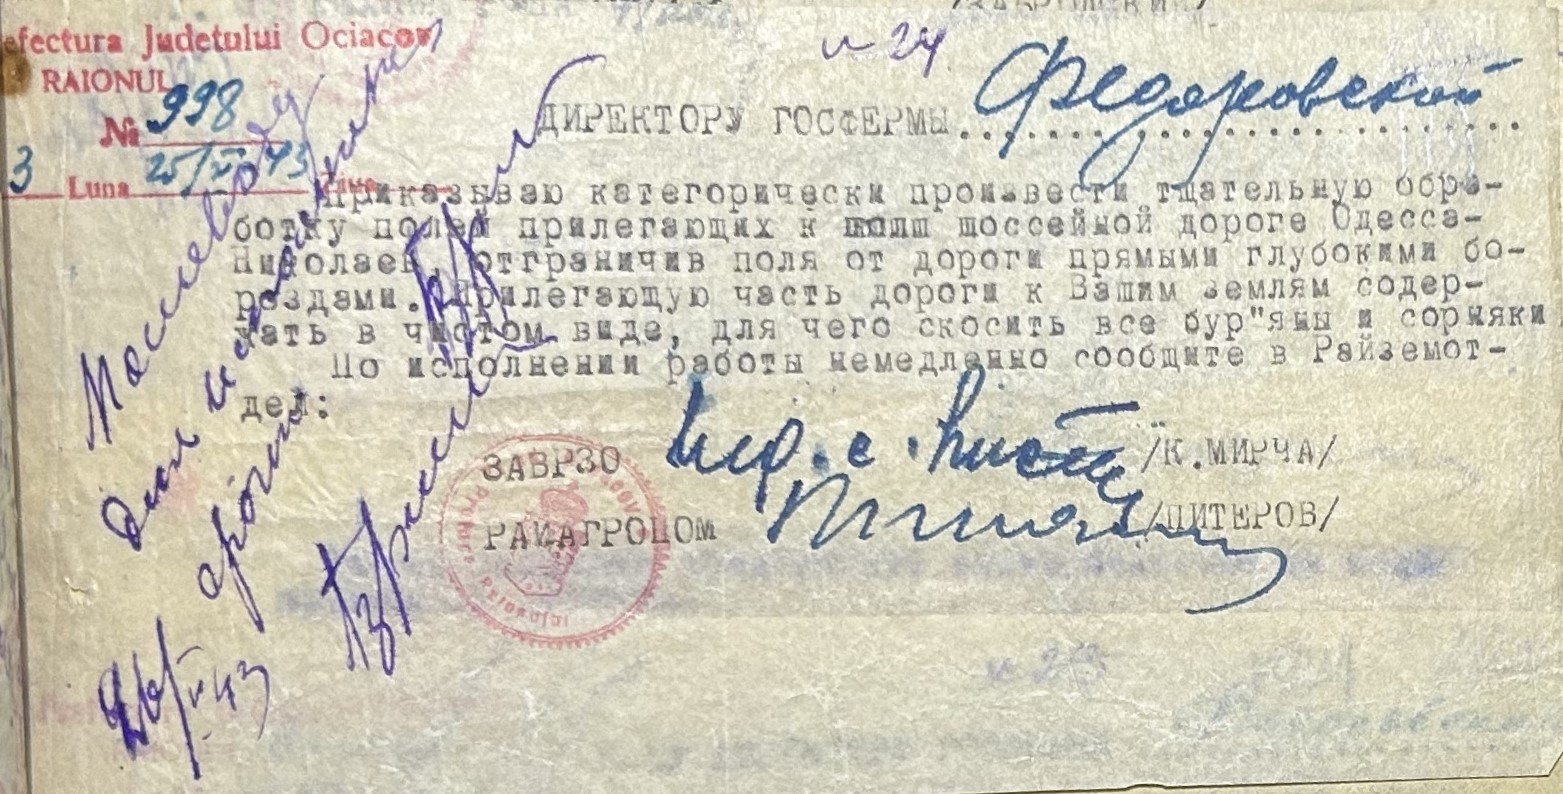 efectura Județului Ociacov
RAIONUL
№ 998
3 Luna 25/VI 43
и 24
ДИРЕКТОРУ ГОСФЕРМЫ Федоровской
Приказываю категорически произвести тщательную обра-
ботку полей прилегающих к шоссейной дороге Одесса-
Николаев, отграничив поля от дороги прямыми глубокими бо-
роздами. Прилегающую часть дороги к Вашим землям содер-
жать в чистом виде, для чего скосить все бур"яны и сорняки
По исполнении работы немедленно сообщите в Райземот-
дел:
ЗАВРЗО /К.МИРЧА/
РАЙАГРОНОМ /ПИТЕРОВ/
для
срочно
26/VI 43